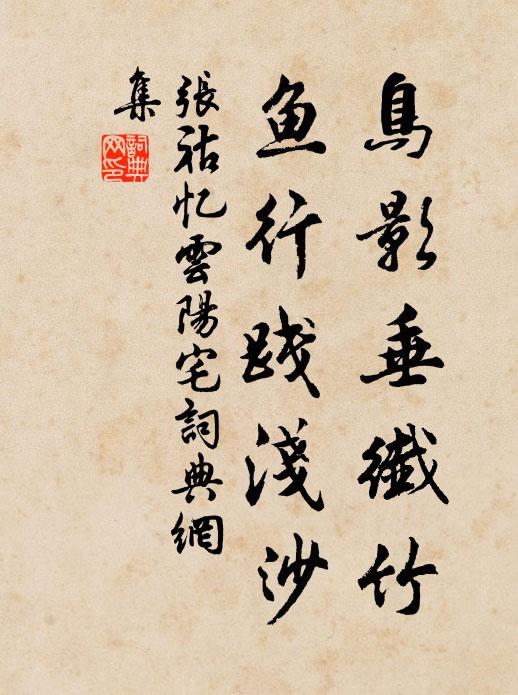 鳥影垂纖竹
鱼行踐淺沙
張祜忆雲陽宅詞典網
集
詞典網印